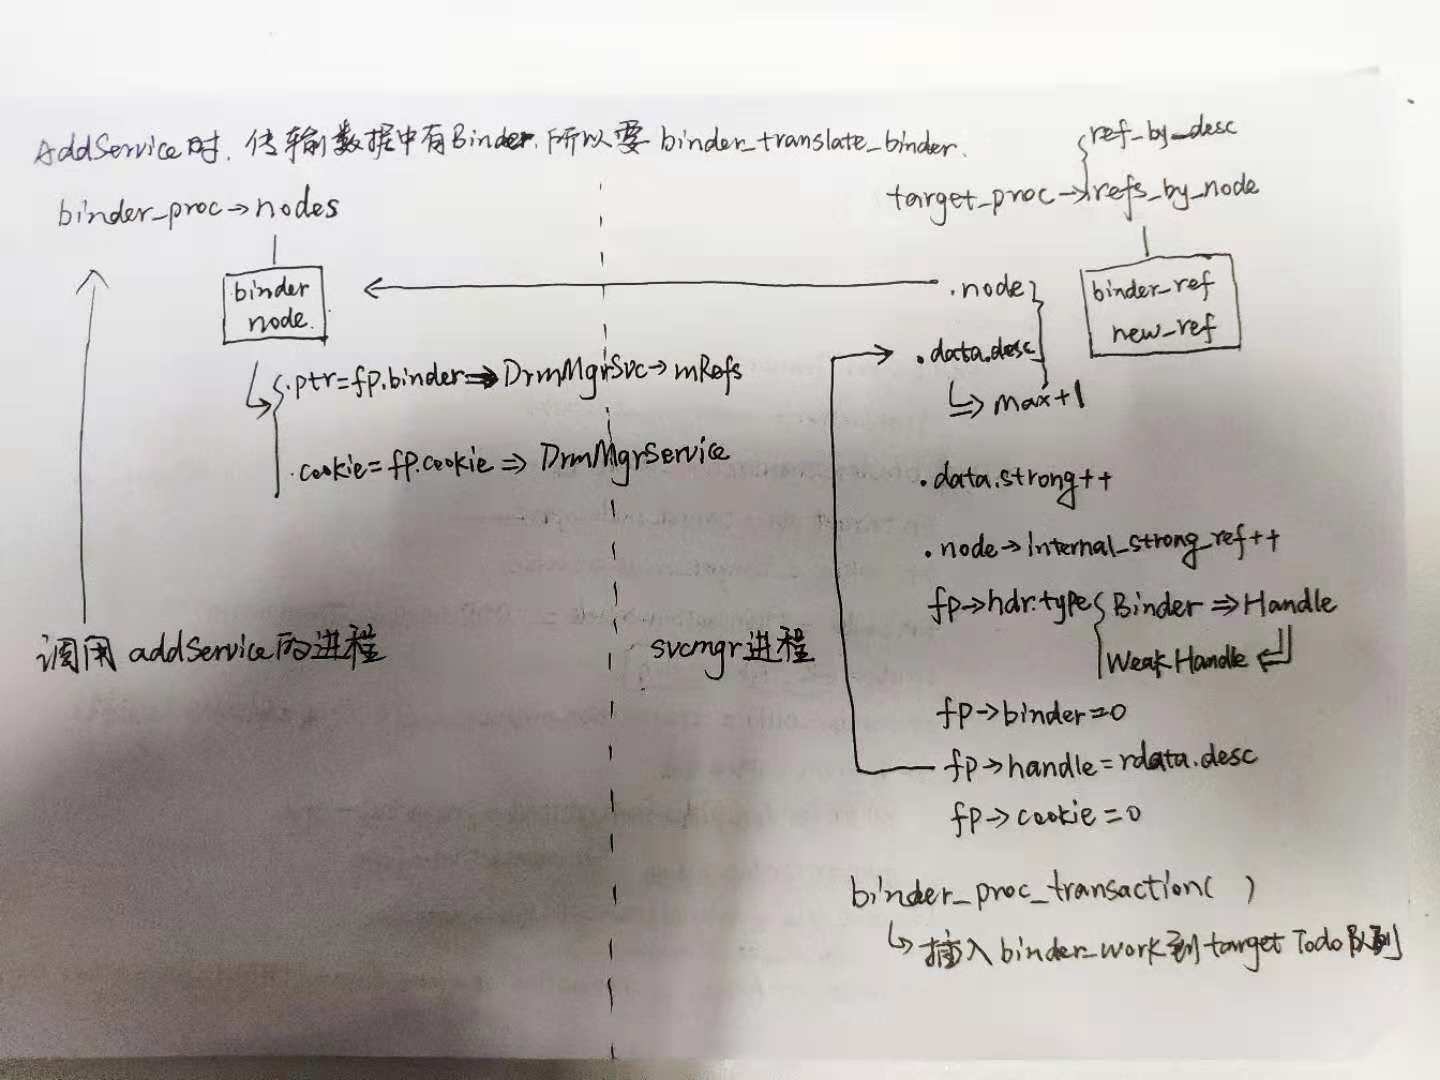 AddService时. 传输数据中有Binder. 所以要 binder_translate_binder.
binder_proc→nodes
binder
node.
.ptr=fp.binder⇒DrmMgrSvc→mRefs
.cookie=fp.cookie⇒DrmMgrService
调用 addService的进程
svcmgr进程
ref_by_desc
target_proc→refs_by_node
binder_ref
new_ref
.node
.data.desc
↳ max+1
.data.strong++
.node→internal_strong_ref++
fp→hdr.type{Binder⇒Handle
Weak Handle
fp→binder=0
fp→handle=rdata.desc
fp→cookie=0
binder_proc_transaction( )
↳ 插入 binder_work到target Todo队列